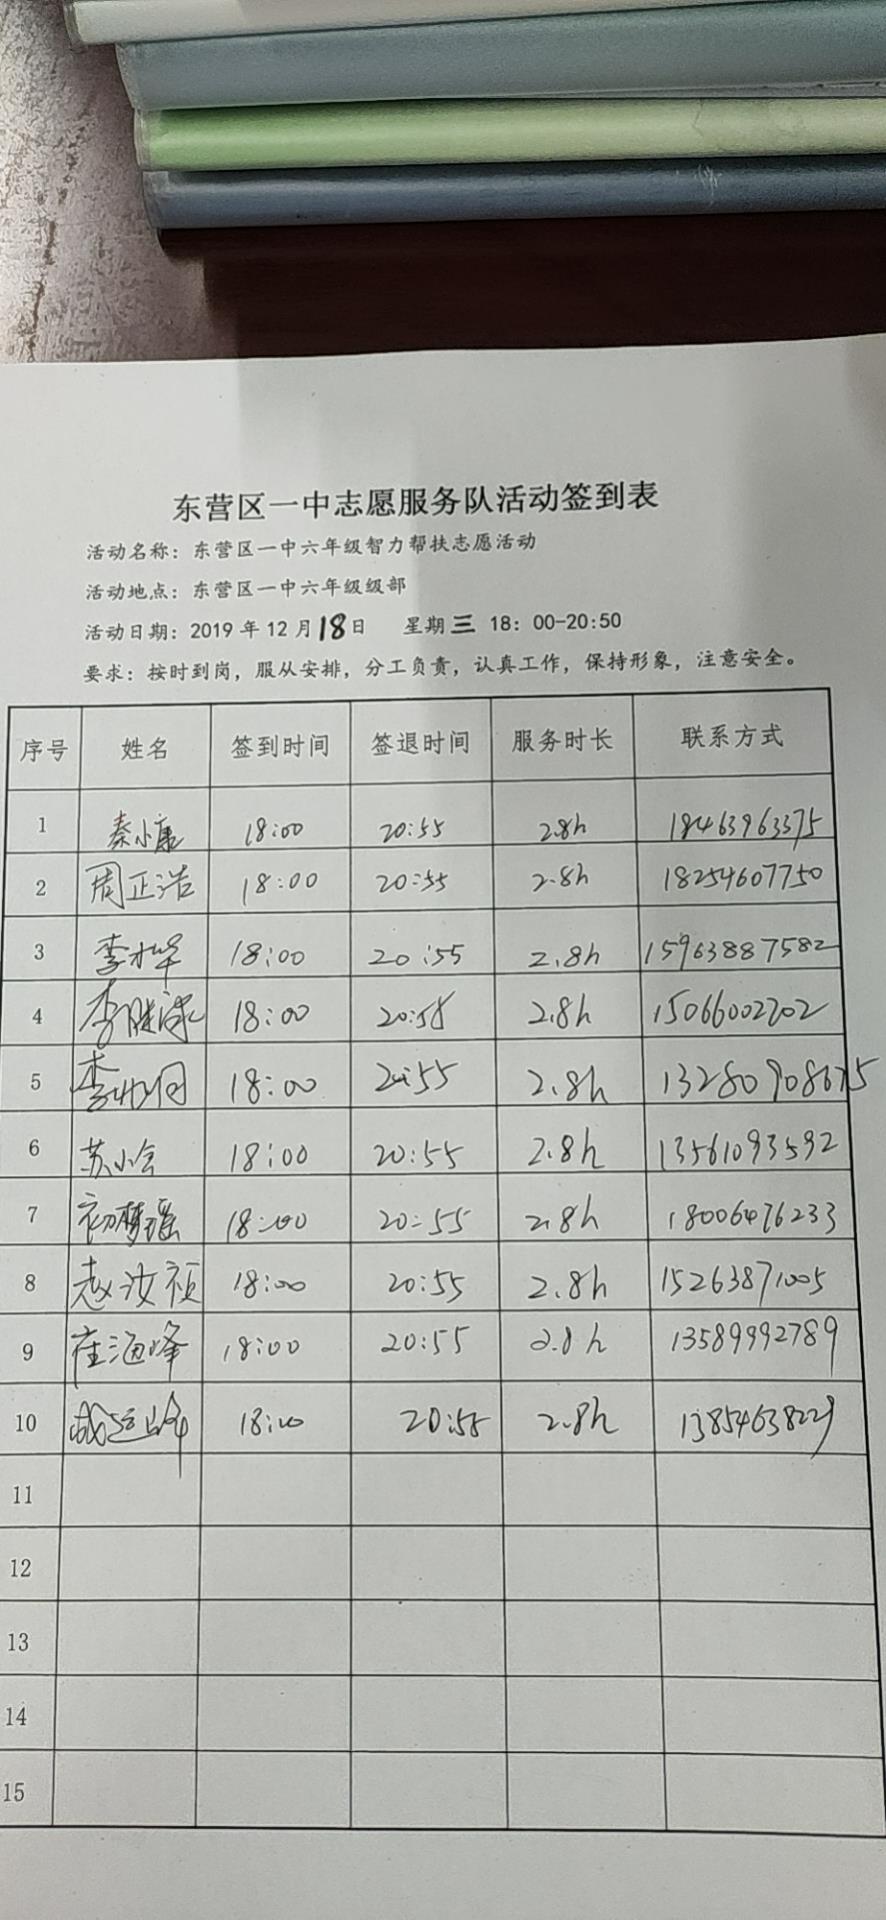 东营区一中志愿服务队活动签到表
活动名称：东营区一中六年级智力帮扶志愿活动
活动地点：东营区一中六年级级部
活动日期：2019 年 12 月 18 日 星期 三 18：00-20:50
要求：按时到岗，服从安排，分工负责，认真工作，保持形象，注意安全。
序号 姓名 签到时间 签退时间 服务时长 联系方式
1 秦小康 18:00 20:55 2.8h 18463963375
2 周正浩 18:00 20:55 2.8h 18254607750
3 18:00 20:55 2.8h 15963887582
4 18:00 20:55 2.8h 15066002702
5 18:00 20:55 2.8h 13280908675
6 苏小会 18:00 20:55 2.8h 13561093592
7 初梦瑶 18:00 20:55 2.8h 18006476233
8 赵汝祯 18:00 20:55 2.8h 15263871005
9 崔海峰 18:00 20:55 2.8h 13589992789
10 18:00 20:55 2.8h
11
12
13
14
15